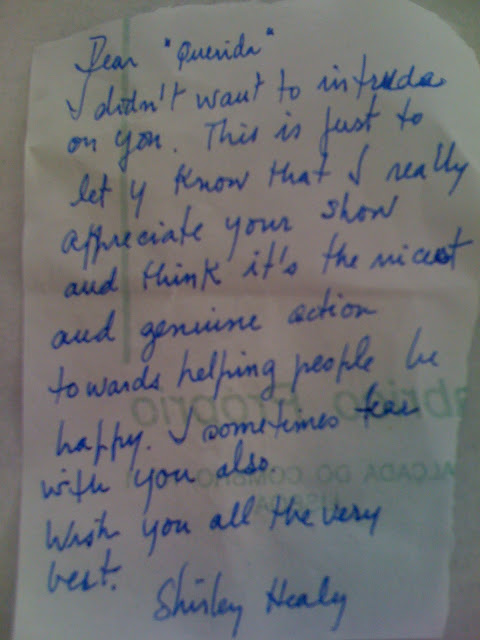 Dear "Querida"
I didn't want to intrude
on you. This is just to
let y know that I really
appreciate your show
and think it's the nicest
and genuine action
towards helping people be
happy. I sometimes tear
with you also.
Wish you all the very
best.
Shirley Healy
abrico Próprio
CALÇADA DO COMBRO
LISBOA